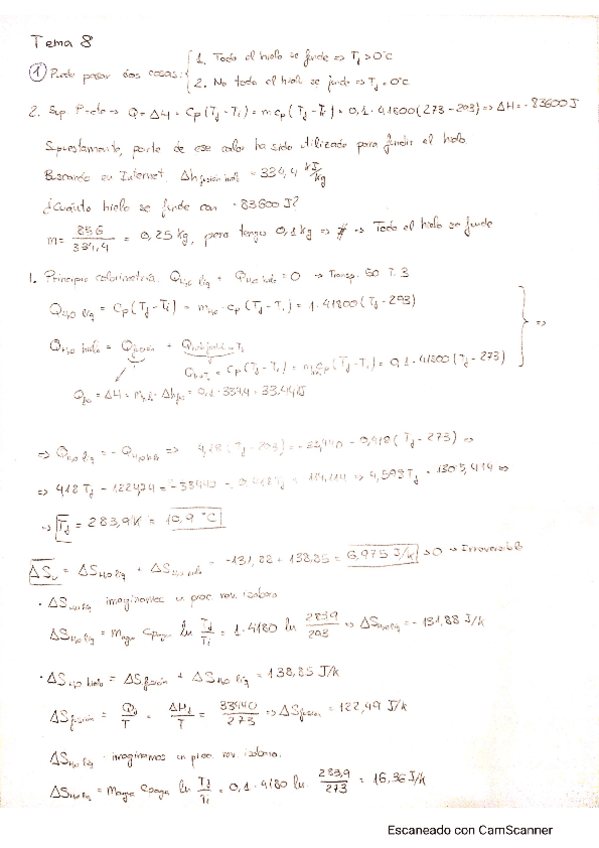 Tema 8
① Puede pasar dos cosas: { 1. Todo el hielo se funde ⇒ Tf > 0°C
2. No todo el hielo se funde ⇒ Tf = 0°C
2. Sup P=cte → Q = ΔH = Cp (Tf - Ti) = m cp (Tf - Ti) = 0,1 · 41800 (273 - 293) ⇒ ΔH = - 83600 J
Supuestamente, parte de ese calor ha sido utilizado para fundir el hielo.
Buscando en Internet Δh fusión = 334,4 kJ/kg
¿Cuánto hielo se funde con - 83600 J?
m = 836 / 334,4 = 0,25 kg, pero tengo 0,1 kg ⇒ ⇒ Todo el hielo se funde
1. Principio calorimetría. Q H2O líq + Q H2O hielo = 0 → Transp. T. 3
Q H2O líq = Cp (Tf - Ti) = m · cp (Tf - Ti) = 1 · 41800 (Tf - 293)
Q H2O hielo = Q fusión +
= Cp (Tf - Ti) = m cp (Tf - Ti) = 0,1 · 41800 (Tf - 273)
= ΔH = m · Δh = 0,1 · 334,4 = 33,44 kJ
⇒ Q H2O líq = - Q H2O hielo ⇒ (Tf - 293) = - 33,440 - 0,418 (Tf - 273) ⇒
⇒ 4,18 Tf - 1224,74 = - 33,440 - 0,418 Tf + 114,114 ⇒ 4,598 Tf = 1305,414 ⇒
→ Tf = 283,9 K = 10,9 °C
ΔSu = ΔS H2O líq + ΔS H2O hielo = -131,88 + 138,85 = 6,975 J/K > 0 → Irreversible
· ΔS H2O líq imaginamos un proc. rev. isóbaro
ΔS H2O líq = m agua cp agua ln Tf/Ti = 1 · 4180 ln 283,9/293 ⇒ ΔS H2O líq = - 131,88 J/K
· ΔS H2O hielo = ΔS fusión + ΔS H2O líq = 138,85 J/K
ΔS fusión = Q/T = ΔH/T = 33440/273 ⇒ ΔS fusión = 122,49 J/K
ΔS H2O líq · imaginamos un proc. rev. isóbaro.
ΔS H2O líq = m agua cp agua ln Tf/Ti = 0,1 · 4180 ln 283,9/273 = 16,36 J/K
Escaneado con CamScanner